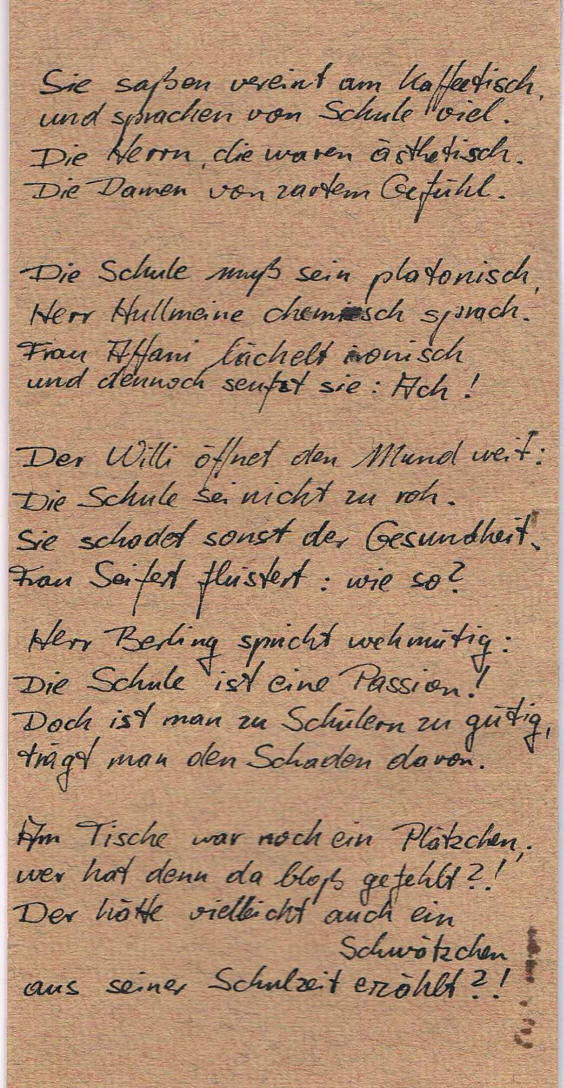 Sie saßen vereint am Kaffeetisch,
und sprachen von Schule viel.
Die Herrn, die waren ästhetisch.
Die Damen von zartem Gefühl.
Die Schule muß sein platonisch,
Herr Hullmeine chemisch sprach.
Frau Affani lächelt ironisch
und dennoch seufzt sie: Ach!
Der Willi öffnet den Mund weit:
Die Schule sei nicht zu roh.
Sie schadet sonst der Gesundheit.
Frau Seifert flüstert: wie so?
Herr Berling spricht wehmütig:
Die Schule ist eine Passion!
Doch ist man zu Schülern zu gütig,
trägt man den Schaden davon.
Am Tische war noch ein Plätzchen,
wer hat denn da bloß gefehlt?!
Der hätte vielleicht auch ein
Schwätzchen
aus seiner Schulzeit erzählt?!